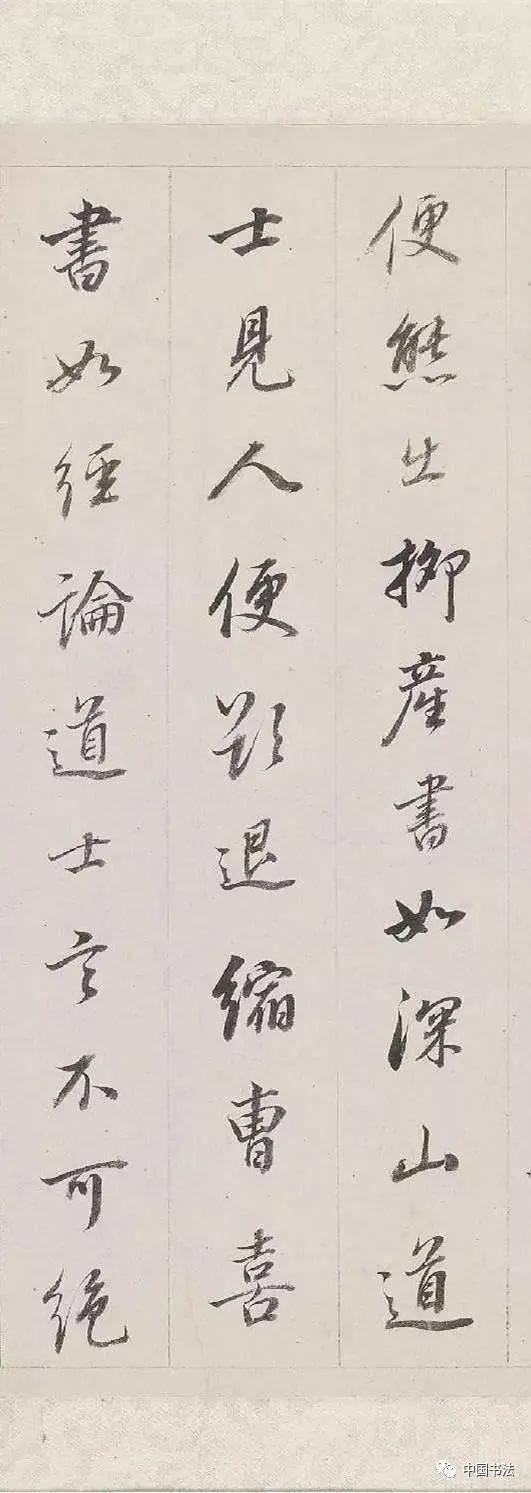 便態出柳產書如深山道
士見人便欲退縮曹喜
書如經論道士言不可絕
中国书法